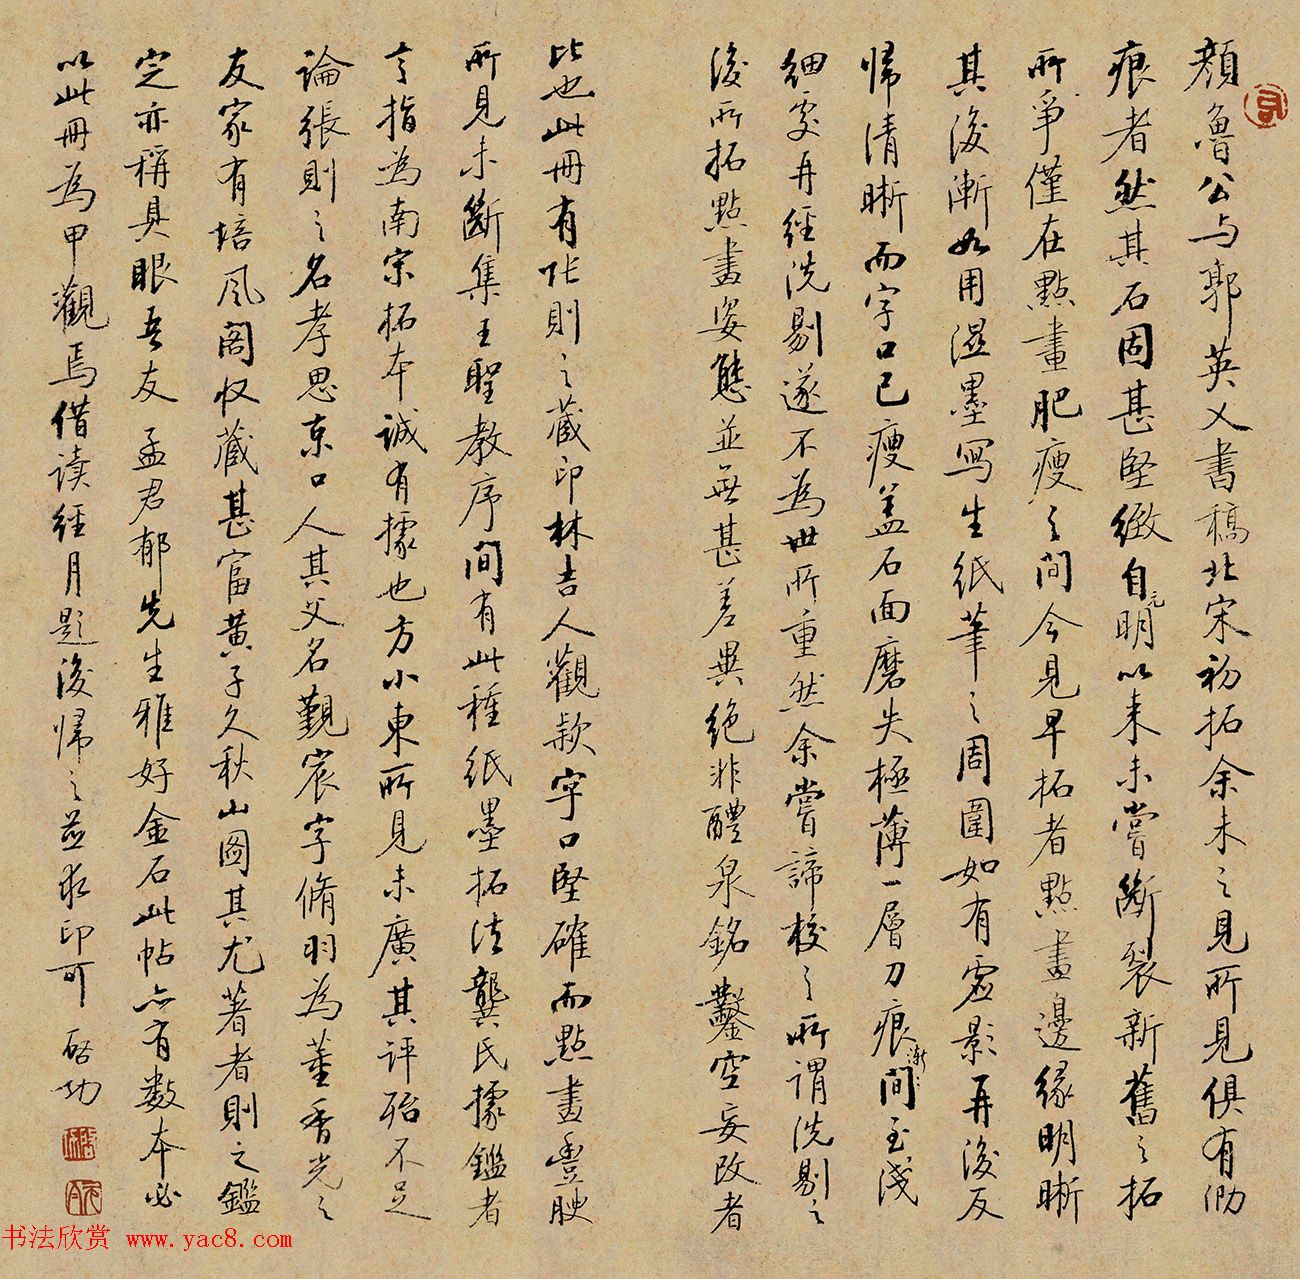 顏魯公与郭英乂書稿北宋初拓余未之見所見俱有泐
痕者然其石固甚堅緻自元明以来未嘗斷裂新舊之拓
所爭僅在點畫肥瘦之間今見早拓者點畫邊緣明晰
其後漸如用濕墨寫生紙筆之周圍如有虛影再後反
歸清晰而字口已瘦蓋石面磨失極薄一層刀痕漸漸間至淺
細處再經洗剔遂不為世所重然余嘗諦校之所謂洗剔之
後所拓點畫姿態並無甚差異絕非醴泉銘鑿空妄改者
比也此冊有張則之蔵印林吉人觀款字口堅確而點畫豊腴
所見未斷集王聖教序間有此種紙墨拓法龔氏據鑑者
言指為南宋拓本誠有據也方小東所見未廣其評殆不足
論張則之名孝思京口人其父名覲宸字脩羽為董香光之
友家有培風阁收蔵甚富黄子久秋山圖其尤著者則之鑑
定亦稱具眼吾友孟君郁先生雅好金石此帖亦有数本必
以此冊為甲觀焉借读經月題後歸之並求印可 启功
书法欣赏 www.yac8.com